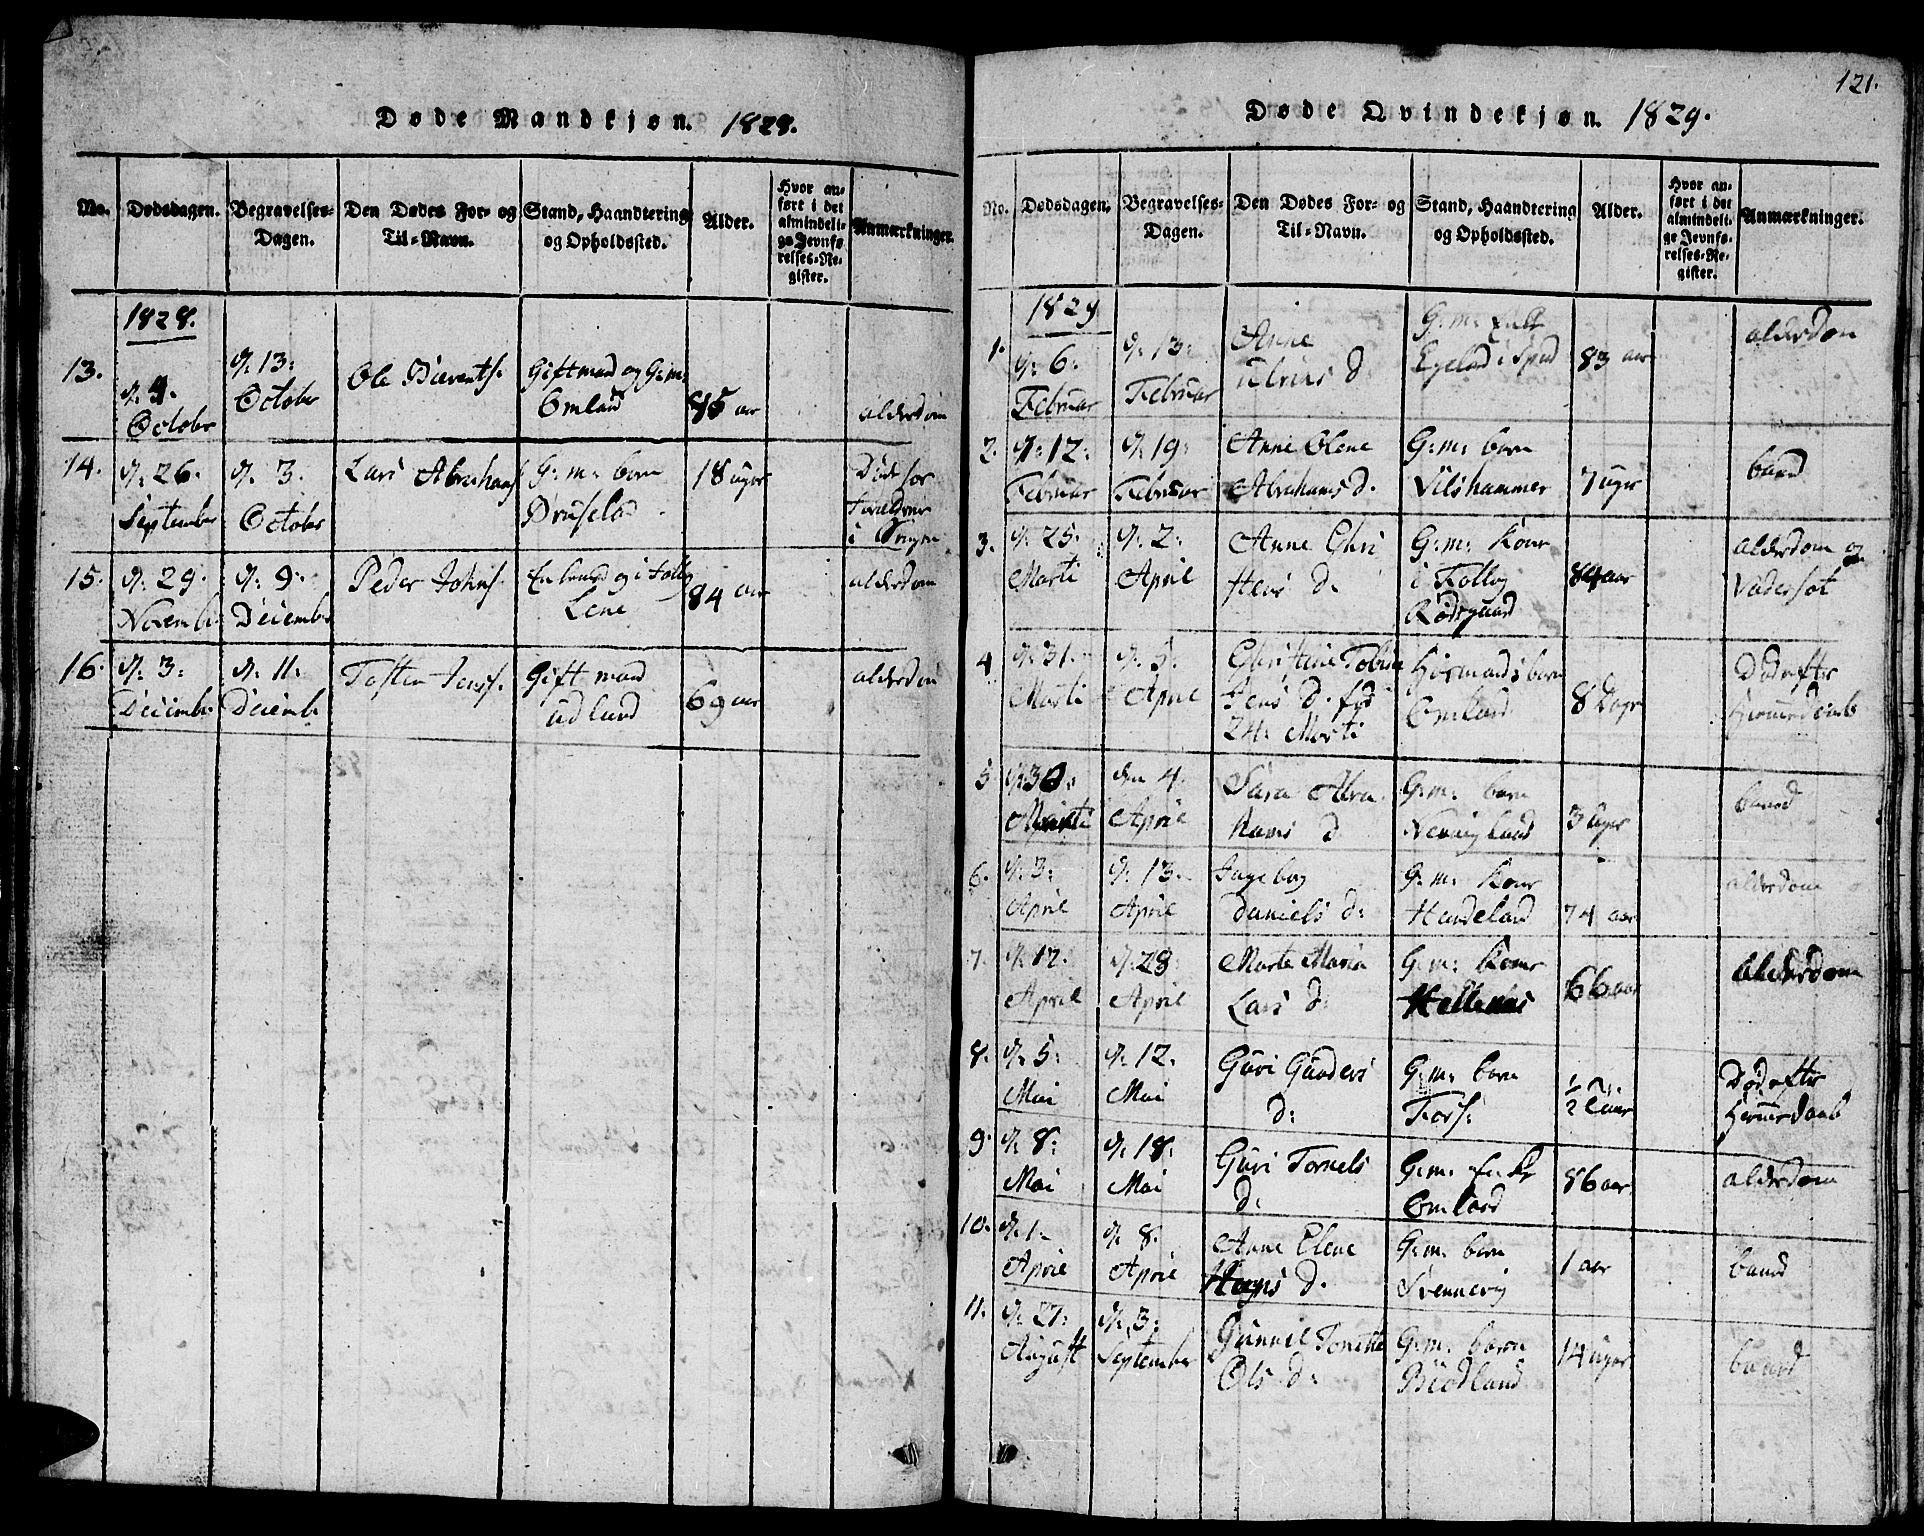 Døde Mandkjøn. 1828.
No. Dødsdagen. Begravelses-Dagen. Den Dødes For- og Til-Navn. Stand, Haandtering og Opholdssted. Alder. Hvor anført i det almindelige Jevnførelses-Register. Anmærkninger.
1828.
13. d. 4. October d. 13: October Ole Gift mand og G: m: Omland 85 aar alderdom
14. d. 26. September d. 3. October Lars G: m: barn 18 uger Død for i
15. d. 29. d. 9. Decembr Peder Johns. Lene 84 aar alderdom
16. d. 3: Decembr d. 11: Decemb Tosten Jens. Gift mand Udland 69 aar alderdom
121.
Døde Qvindekjøn. 1829.
No. Dødsdagen. Begravelses-Dagen. Den Dødes For- og Til-Navn. Stand, Haandtering og Opholdssted. Alder. Hvor anført i det almindelige Jevnførelses-Register. Anmærkninger.
1829
1. d. 6. Februar d. 13: Februar Anne d. G: m: Enke Egeland i 83 aar alderdom
2. d. 12: Februar d. 19: Februar Anne Olene Abrahams d. G: m: barn Lilshammer 7 uger
3. d. 25. Marti d. 2: April Anne Chri stens d. G: m: Kone i Rødsgaard 84 aar alderdom og Vadersot
4 d. 31. Marti d. 5. April Christine Jens d. fød 24: Marti Huusmands barn Omland 8 Dage Død efter
5 d. 30. Marti den 4. April Sara Abra hams d G: m: barn 3 uger
6. d. 3: April d. 13. April Ingebor Daniels d: G: m: Kone Haudeland 74 aar alderdom
7. d. 12. April d. 28. April Marte Maria Lars d. G: m: Kone 66 aar alderdom
8. d. 5: Mai d. 12: Mai Guri Gunders d: G: m: barn ½ Død efter
9. d. 8: Mai d. 18: Mai Guri Tornels d. G: m: Enke Omland 86 aar alderdom
10. d. 1. April d. 8. April Anne Elene d. G: m: barn Svennevig 1 aar
11. d. 27: August d. 3: September Gunnil Tonette Ols d: G: m: barn Birdland 14 uger